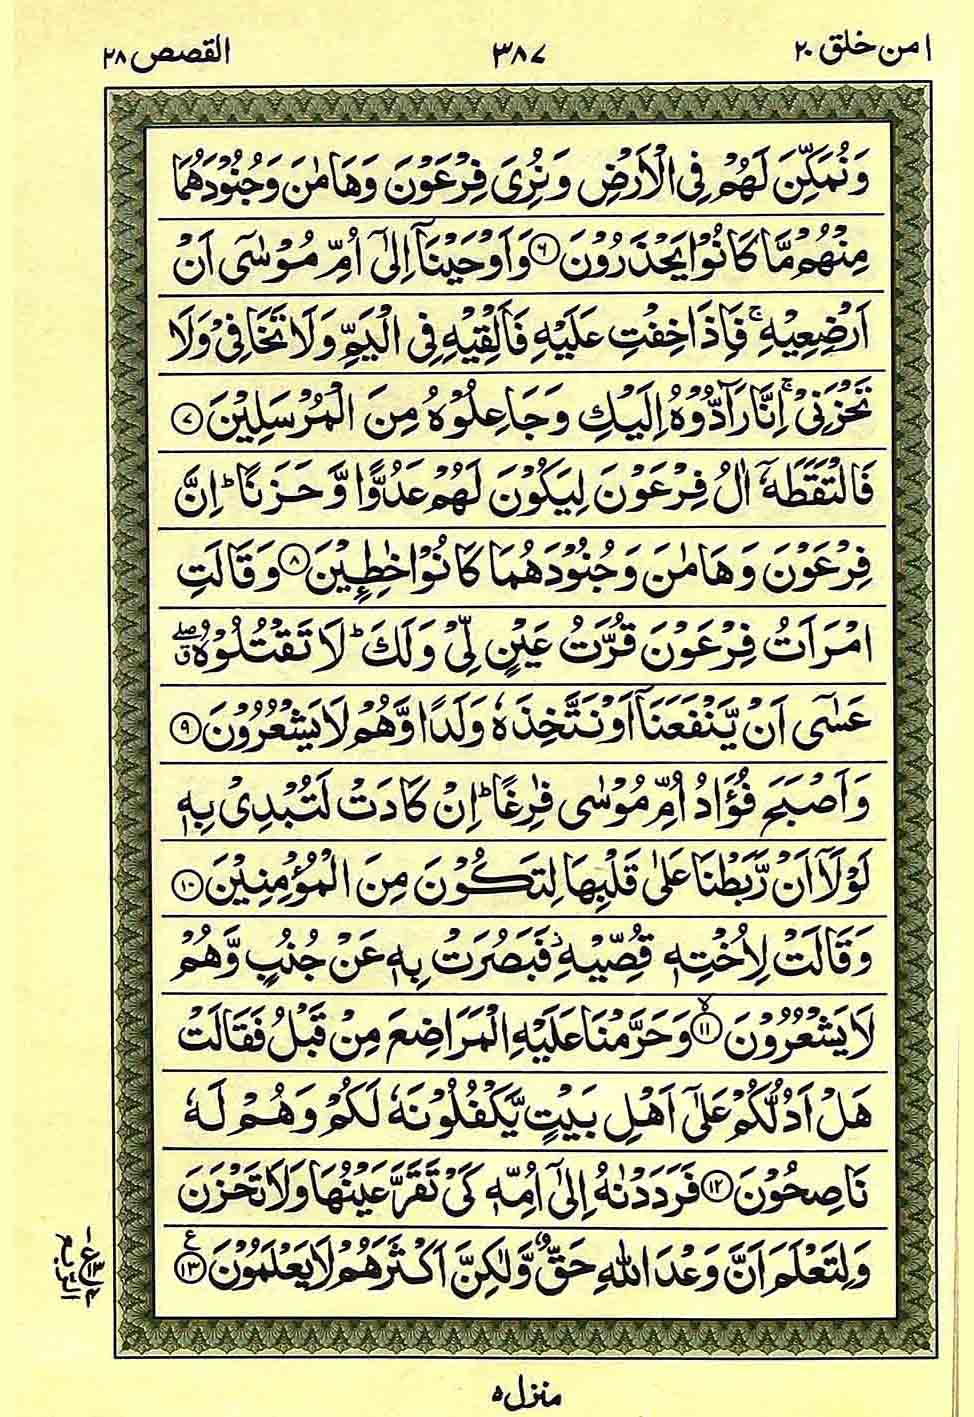 امن خلق ۲۰
۳۸۷
القصص ۲۸
وَنُمَكِّنَ لَهُمْ فِي الْاَرْضِ وَنُرِيَ فِرْعَوْنَ وَهَامٰنَ وَجُنُوْدَهُمَا
مِنْهُمْ مَّا كَانُوْا يَحْذَرُوْنَ ۶ وَاَوْحَيْنَاۤ اِلٰۤى اُمِّ مُوْسٰۤى اَنْ
اَرْضِعِيْهِ ۚ فَاِذَا خِفْتِ عَلَيْهِ فَاَلْقِيْهِ فِي الْيَمِّ وَلَا تَخَافِيْ وَلَا
تَحْزَنِيْ ۚ اِنَّا رَآدُّوْهُ اِلَيْكِ وَجَاعِلُوْهُ مِنَ الْمُرْسَلِيْنَ ۷
فَالْتَقَطَهٗۤ اٰلُ فِرْعَوْنَ لِيَكُوْنَ لَهُمْ عَدُوًّا وَّحَزَنًا ؕ اِنَّ
فِرْعَوْنَ وَهَامٰنَ وَجُنُوْدَهُمَا كَانُوْا خٰطِـِٕيْنَ ۸ وَقَالَتِ
امْرَاَتُ فِرْعَوْنَ قُرَّتُ عَيْنٍ لِّيْ وَلَكَ ؕ لَا تَقْتُلُوْهُ ۖۗ
عَسٰۤى اَنْ يَّنْفَعَنَاۤ اَوْ نَتَّخِذَهٗ وَلَدًا وَّهُمْ لَا يَشْعُرُوْنَ ۹
وَاَصْبَحَ فُؤَادُ اُمِّ مُوْسٰى فٰرِغًا ؕ اِنْ كَادَتْ لَتُبْدِيْ بِهٖ
لَوْلَاۤ اَنْ رَّبَطْنَا عَلٰى قَلْبِهَا لِتَكُوْنَ مِنَ الْمُؤْمِنِيْنَ ۱۰
وَقَالَتْ لِاُخْتِهٖ قُصِّيْهِ ؗ فَبَصُرَتْ بِهٖ عَنْ جُنُبٍ وَّهُمْ
لَا يَشْعُرُوْنَ ۙ ۱۱ وَحَرَّمْنَا عَلَيْهِ الْمَرَاضِعَ مِنْ قَبْلُ فَقَالَتْ
هَلْ اَدُلُّكُمْ عَلٰۤى اَهْلِ بَيْتٍ يَّكْفُلُوْنَهٗ لَكُمْ وَهُمْ لَهٗ
نَاصِحُوْنَ ۱۲ فَرَدَدْنٰهُ اِلٰۤى اُمِّهٖ كَيْ تَقَرَّ عَيْنُهَا وَلَا تَحْزَنَ
وَلِتَعْلَمَ اَنَّ وَعْدَ اللّٰهِ حَقٌّ وَّلٰكِنَّ اَكْثَرَهُمْ لَا يَعْلَمُوْنَ ۱۳ ع
الربع
منزل ۵